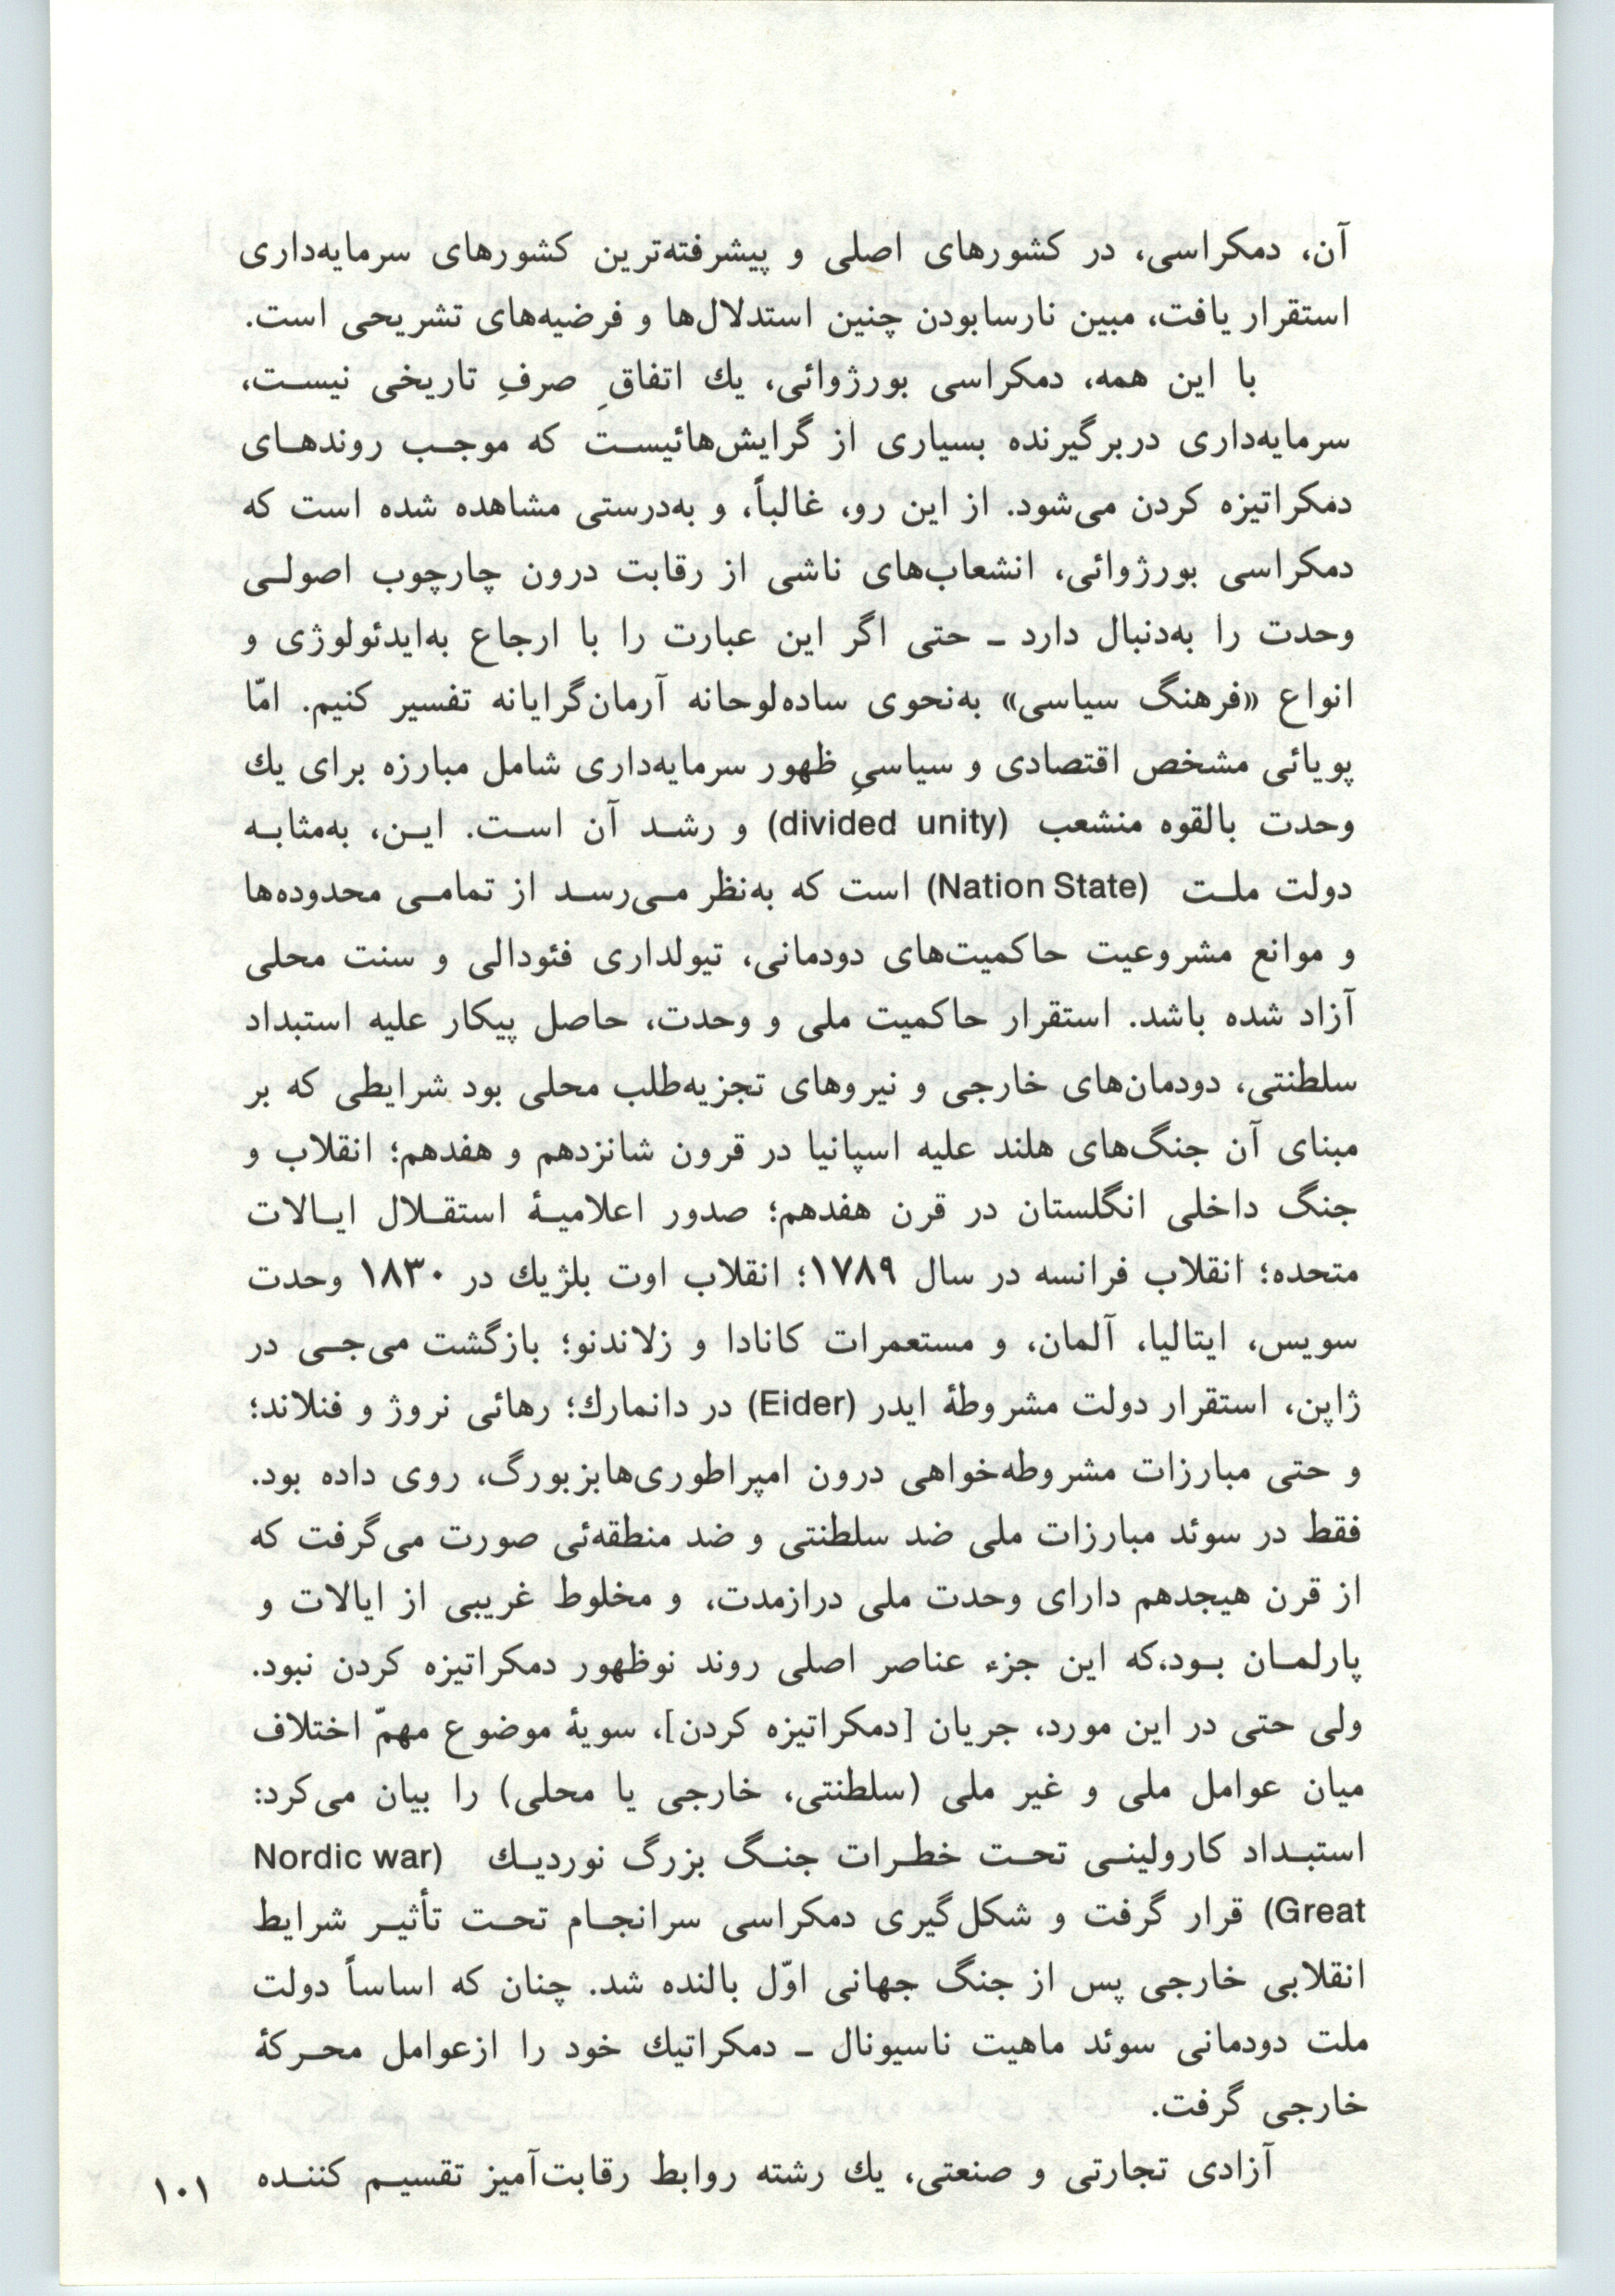 آن، دمکراسی، در کشورهای اصلی و پیشرفته‌ترین کشورهای سرمایه‌داری
استقرار یافت، مبین نارسابودن چنین استدلال‌ها و فرضیه‌های تشریحی است.
با این همه، دمکراسی بورژوائی، یك اتفاقِ صرفِ تاریخی نیست،
سرمایه‌داری دربرگیرنده بسیاری از گرایش‌هائیست که موجب روندهای
دمکراتیزه کردن می‌شود. از این رو، غالباً، و به‌درستی مشاهده شده است که
دمکراسی بورژوائی، انشعاب‌های ناشی از رقابت درون چارچوب اصولی
وحدت را به‌دنبال دارد ـ حتی اگر این عبارت را با ارجاع به‌ایدئولوژی و
انواع «فرهنگ سیاسی» به‌نحوی ساده‌لوحانه آرمان‌گرایانه تفسیر کنیم. امّا
پویائی مشخص اقتصادی و سیاسیِ ظهور سرمایه‌داری شامل مبارزه برای یك
وحدت بالقوه منشعب (divided unity) و رشد آن است. این، به‌مثابه
دولت ملت (Nation State) است که به‌نظر می‌رسد از تمامی محدوده‌ها
و موانع مشروعیت حاکمیت‌های دودمانی، تیولداری فئودالی و سنت محلی
آزاد شده باشد. استقرار حاکمیت ملی و وحدت، حاصل پیکار علیه استبداد
سلطنتی، دودمان‌های خارجی و نیروهای تجزیه‌طلب محلی بود شرایطی که بر
مبنای آن جنگ‌های هلند علیه اسپانیا در قرون شانزدهم و هفدهم؛ انقلاب و
جنگ داخلی انگلستان در قرن هفدهم؛ صدور اعلامیهٔ استقلال ایالات
متحده؛ انقلاب فرانسه در سال ۱۷۸۹؛ انقلاب اوت بلژیك در ۱۸۳۰ وحدت
سویس، ایتالیا، آلمان، و مستعمرات کانادا و زلاندنو؛ بازگشت می‌جی در
ژاپن، استقرار دولت مشروطهٔ ایدر (Eider) در دانمارك؛ رهائی نروژ و فنلاند؛
و حتی مبارزات مشروطه‌خواهی درون امپراطوری‌هابزبورگ، روی داده بود.
فقط در سوئد مبارزات ملی ضد سلطنتی و ضد منطقه‌ئی صورت می‌گرفت که
از قرن هیجدهم دارای وحدت ملی درازمدت، و مخلوط غریبی از ایالات و
پارلمان بود،که این جزء عناصر اصلی روند نوظهور دمکراتیزه کردن نبود.
ولی حتی در این مورد، جریان [دمکراتیزه کردن]، سویهٔ موضوع مهمّ اختلاف
میان عوامل ملی و غیر ملی (سلطنتی، خارجی یا محلی) را بیان می‌کرد:
استبداد کارولینی تحت خطرات جنگ بزرگ نوردیك (Nordic war
Great) قرار گرفت و شکل‌گیری دمکراسی سرانجام تحت تأثیر شرایط
انقلابی خارجی پس از جنگ جهانی اوّل بالنده شد. چنان که اساساً دولت
ملت دودمانی سوئد ماهیت ناسیونال ـ دمکراتیك خود را ازعوامل محرکهٔ
خارجی گرفت.
آزادی تجارتی و صنعتی، یك رشته روابط رقابت‌آمیز تقسیم کننده
۱۰۱